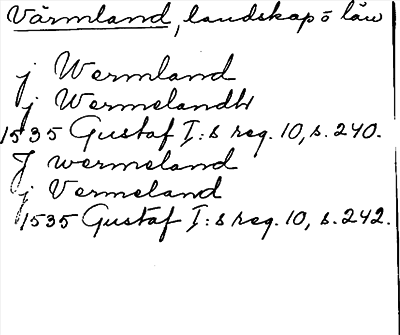 Värmland, landskap o län
j Wermland
j Wermelandh
1535 Gustaf I:s reg. 10, s. 240.
J wermeland
j Vermeland
1535 Gustaf I:s reg. 10, s. 242.